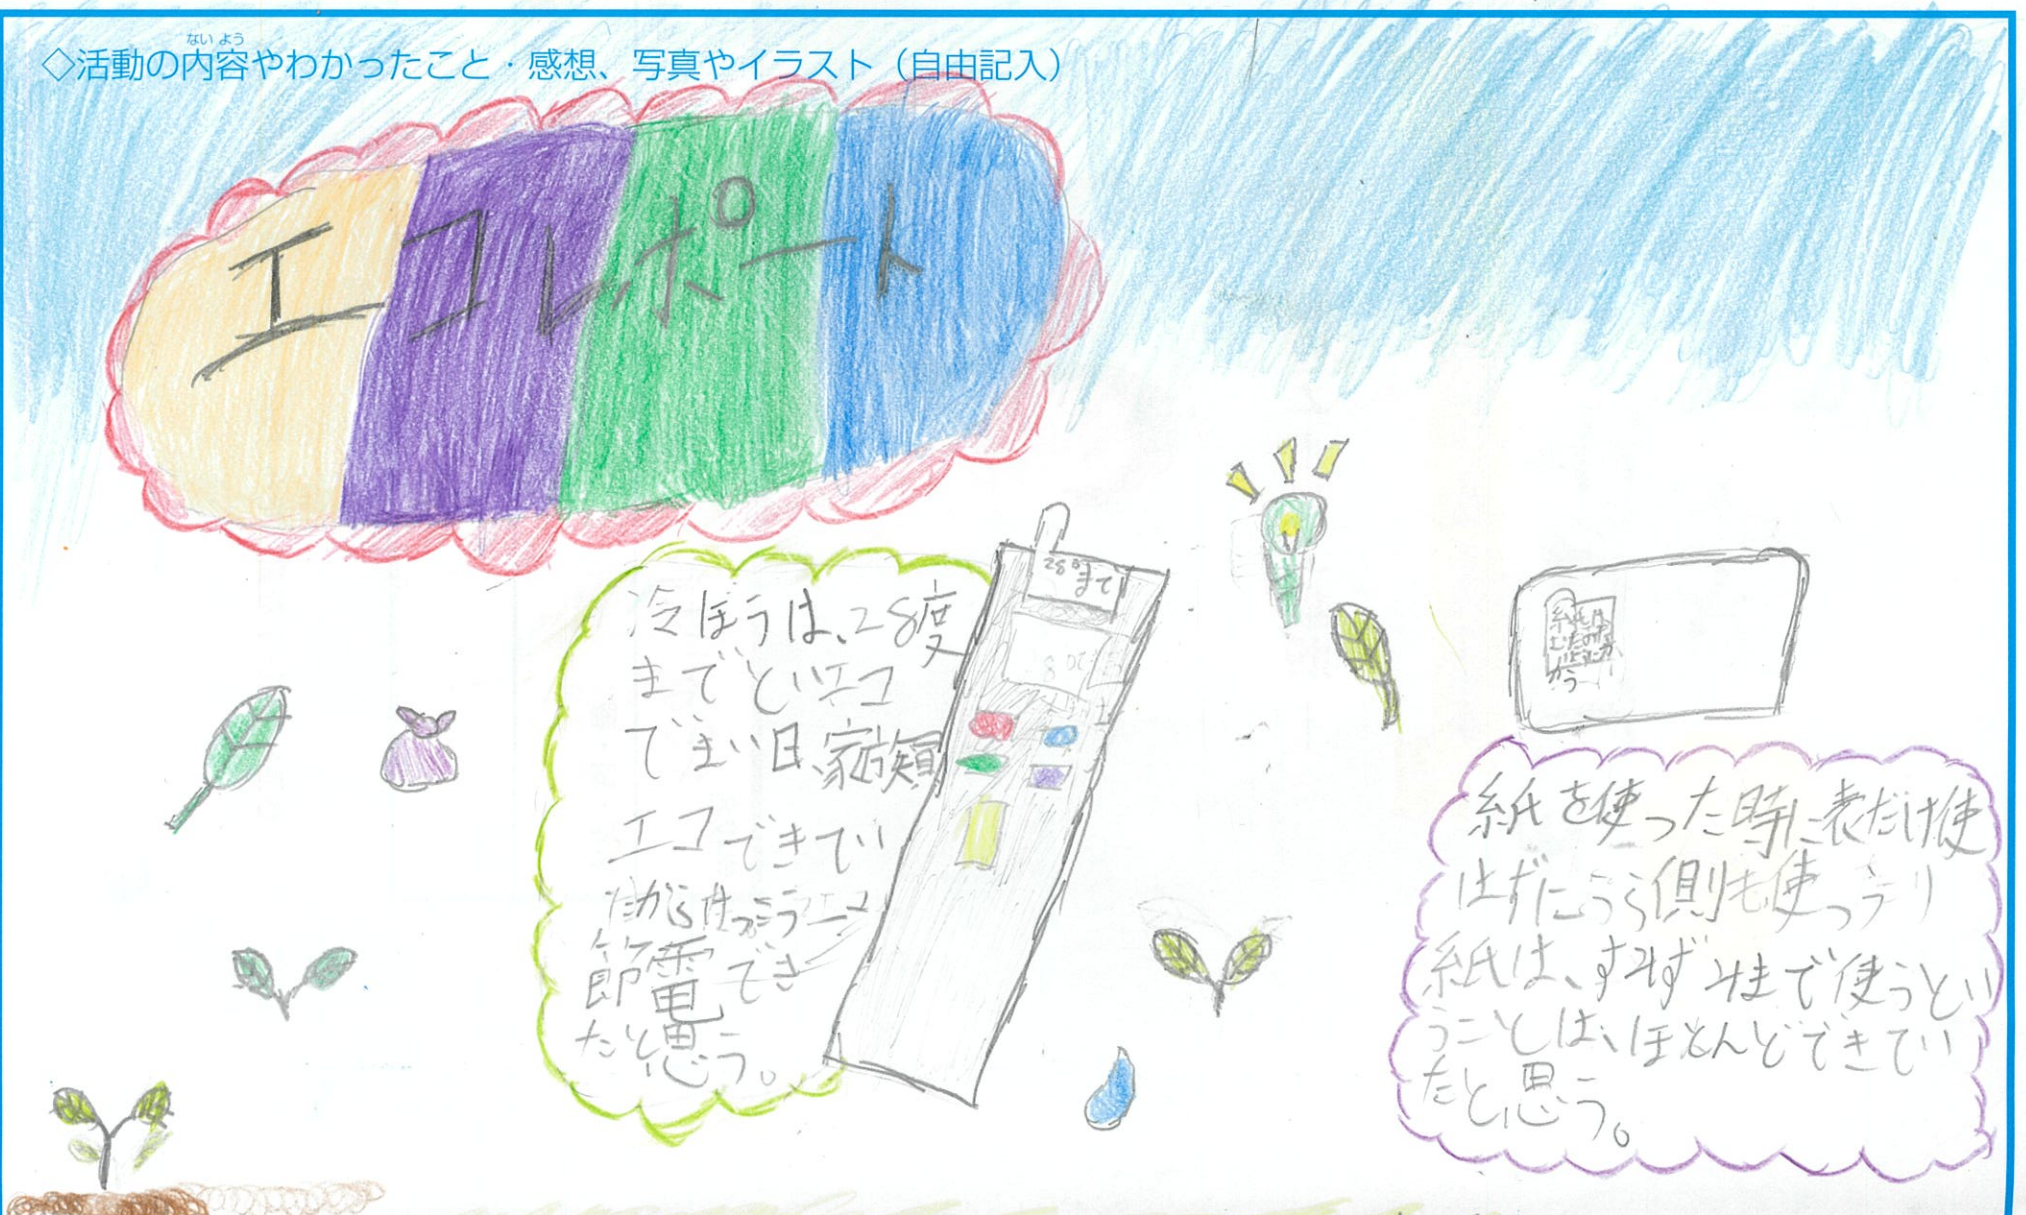 ◇活動の内容やわかったこと・感想、写真やイラスト（自由記入）
ないよう
エコレポート
冷ぼうは、28度
までというエコ
でまい日、家族
エコできてい
たから
節電でき
たと思う。
28°まで
紙は
紙を使った時に表だけ使
はずにうら側も使ったり
紙は、すみずみまで使うとい
うことは、ほとんどできてい
たと思う。